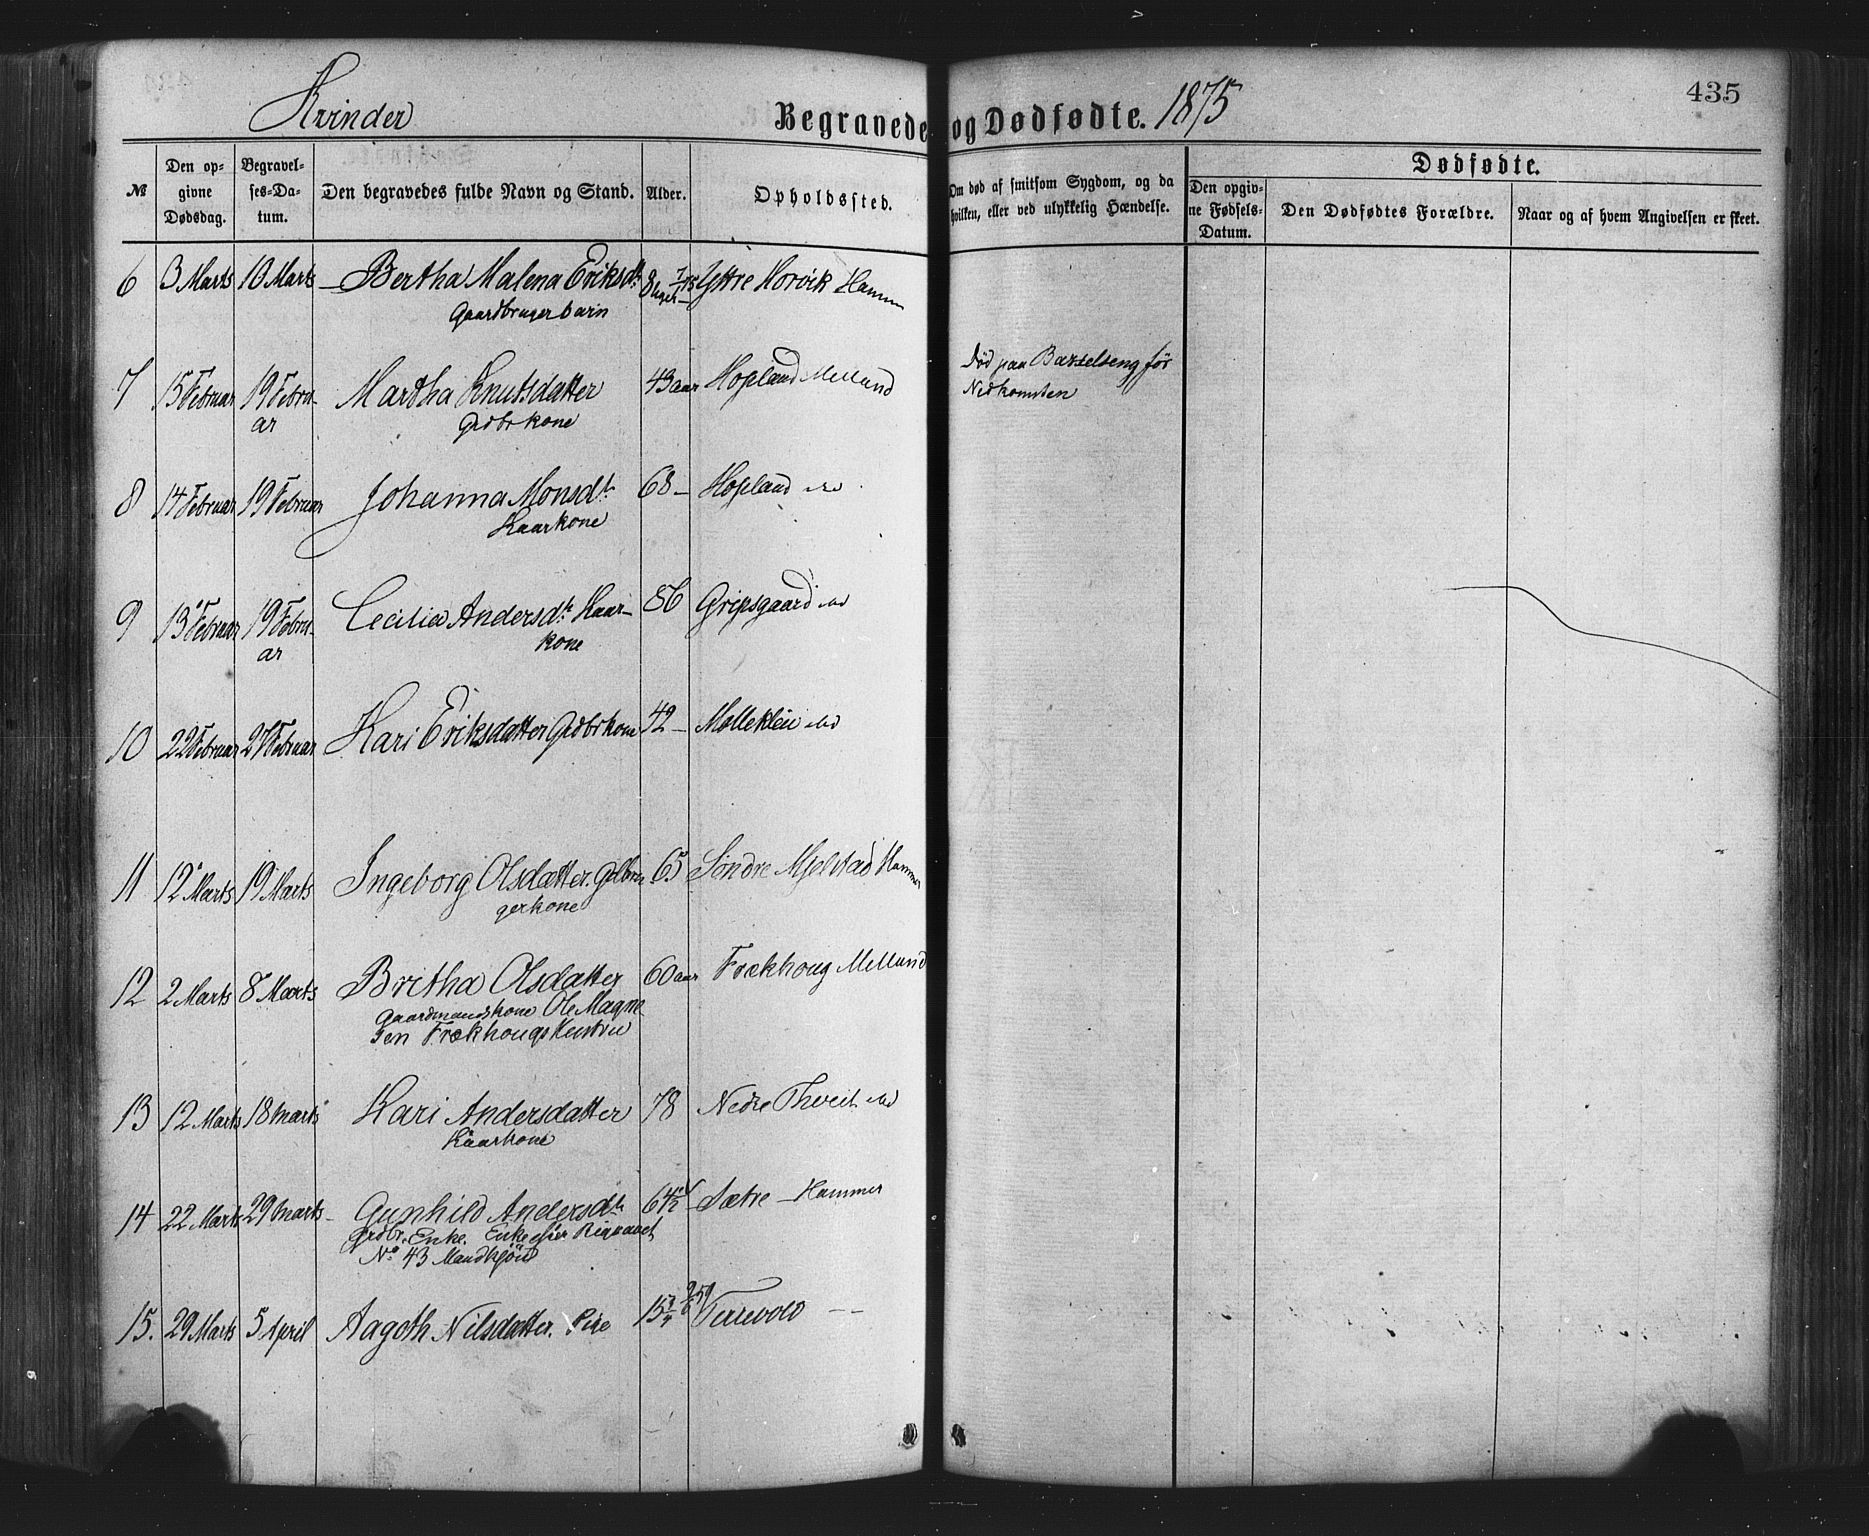 435
Kvinder
Begravede og Dødfødte. 1875
Dødfødte.
№
Den opgivne Dødsdag.
Begravelses-Datum.
Den begravedes fulde Navn og Stand.
Alder.
Opholdssted.
Om død af smitsom Sygdom, og da hvilken, eller ved ulykkelig Hændelse.
Den opgivne Fødsels-Datum.
Den Dødfødtes Forældre.
Naar og af hvem Angivelsen er skeet.
6 3 Marts 10 Marts Bertha Malena Eriksdtr 8 uger Yttre Horvik Hammer
Gaardbrugerbarn
7 15 Februar 19 Februar Martha Knutsdatter 43 aar Hopland Melland Død paa Barselseng før
Grdbrkone Nedkomsten
8 14 Februar 19 Februar Johanna Monsdtr 68 - Hopland
Kaarkone
9 13 Februar 19 Februar Cecilia Andersdtr Kaar- 86 Gripsgaard
kone
10 22 Februar 27 Februar Kari Eriksdatter Grdbrkone 42 - Mollekleiv
11 12 Marts 19 Marts Ingeborg Olsdatter 65 Søndre Mjelstad Hammer
gerkone
12 2 Marts 8 Marts Britha Olsdatter 60 aar Frækhoug Melland
Gaardmandskone Ole Magne-
sen Frækhougs Hustru
13 12 Marts 18 Marts Kari Andersdatter 78 Nedre Thveit
Kaarkone
14 22 Marts 29 Marts Gunhild Andersdtr 64½ Sætre - Hammer
Grdbr. Enke. Enke efter
No 43 Mandkjøn
15. 29 Marts 5 April Aagoth Nilsdatter. Pige 15 Tellevold - -